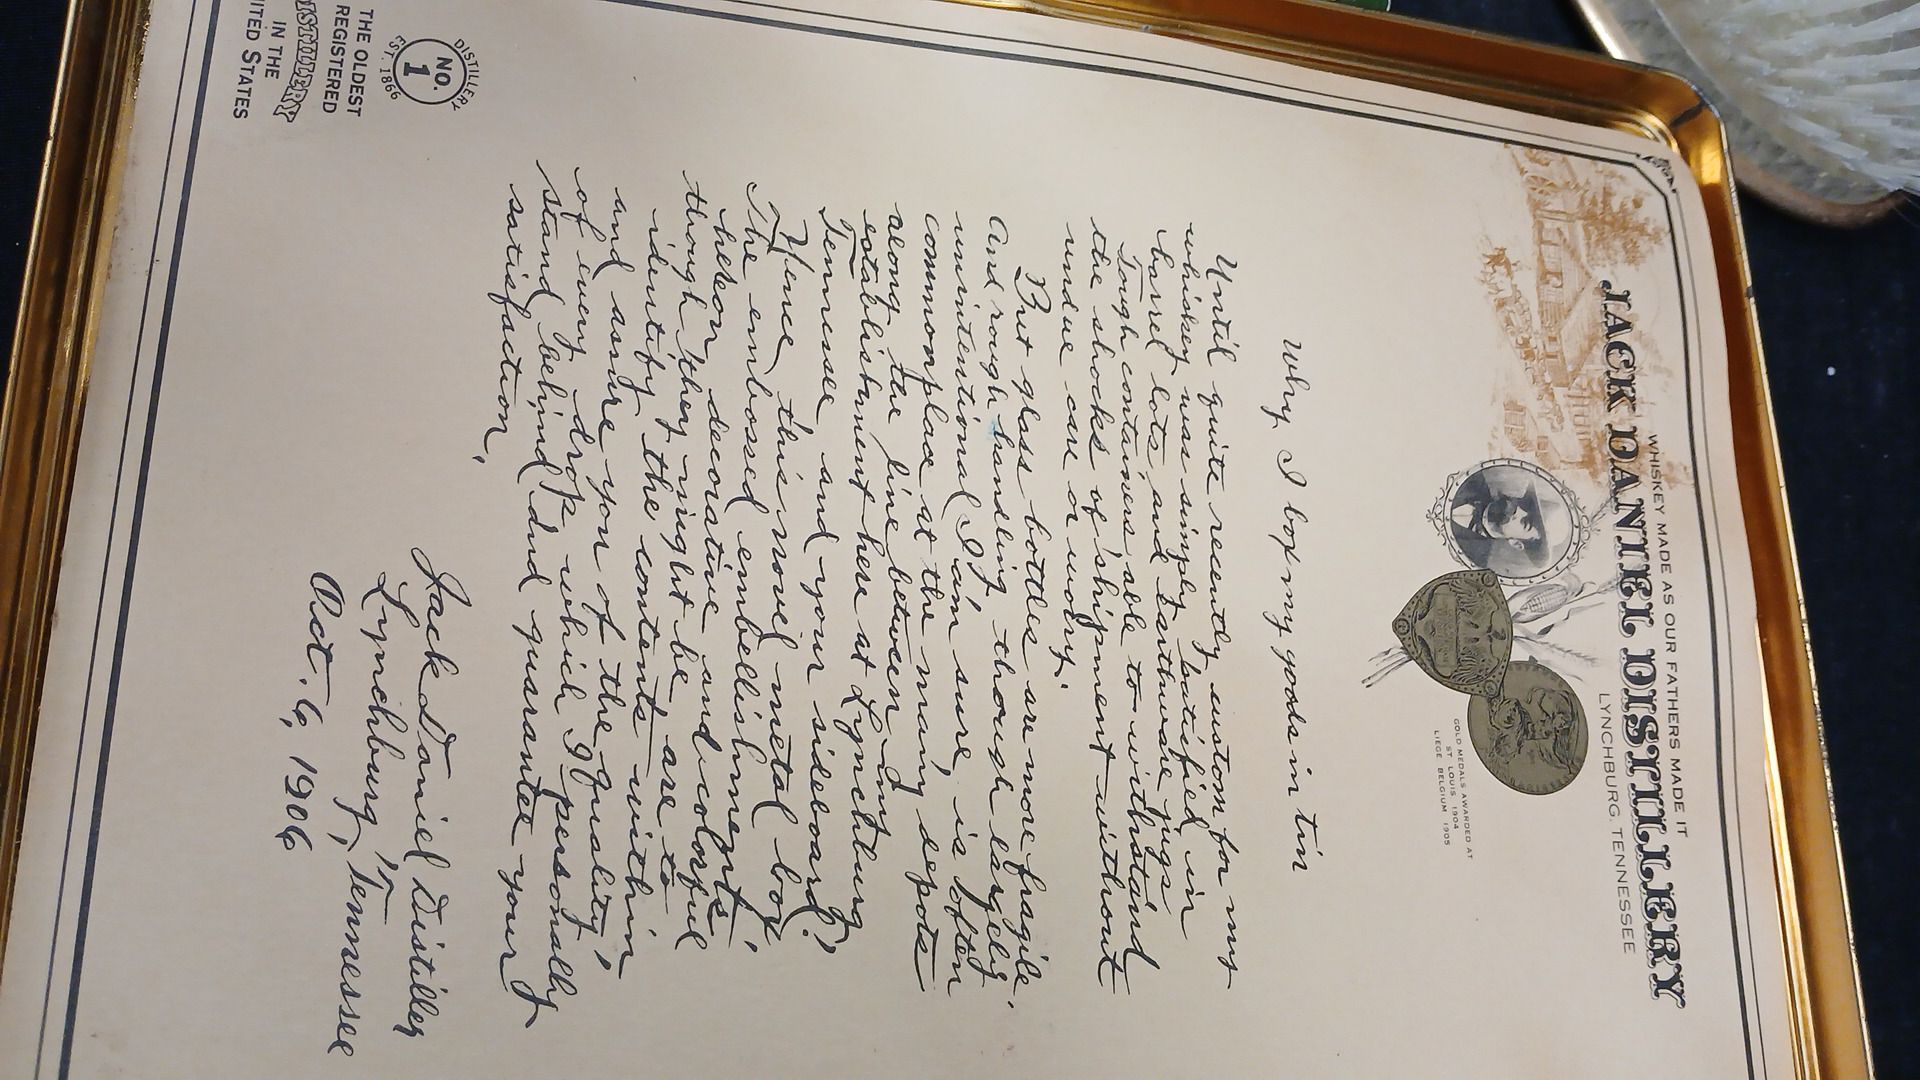 WHISKEY MADE AS OUR FATHERS MADE IT
JACK DANIEL DISTILLERY
LYNCHBURG, TENNESSEE
GOLD MEDALS AWARDED AT
ST LOUIS 1904
LIEGE BELGIUM 1905
Why I box my goods in tin
Until quite recently custom for my
whiskey was simply batified, in
barrel lots, and Earthware jugs.
Tough containers able to withstand
the shocks of shipment without
undue care or worry.
But glass bottles are more fragile
And rough handling though largely
unintentional I am sure, is often
commonplace at the many depots
along the line between my
establishment here at Lynchburg,
Tennessee and your sideboard.
Hence this novel metal box
The embossed embellishments
hereon decorative and colorful
though they might be are to
identify the contents within
and assure you of the quality
of every drop which I personally
stand behind And guarantee your
satisfaction.
Jack Daniel Distiller
Lynchburg, Tennessee
Oct. 6, 1906
DISTILLERY
NO.
1
EST. 1866
THE OLDEST
REGISTERED
DISTILLERY
IN THE
UNITED STATES